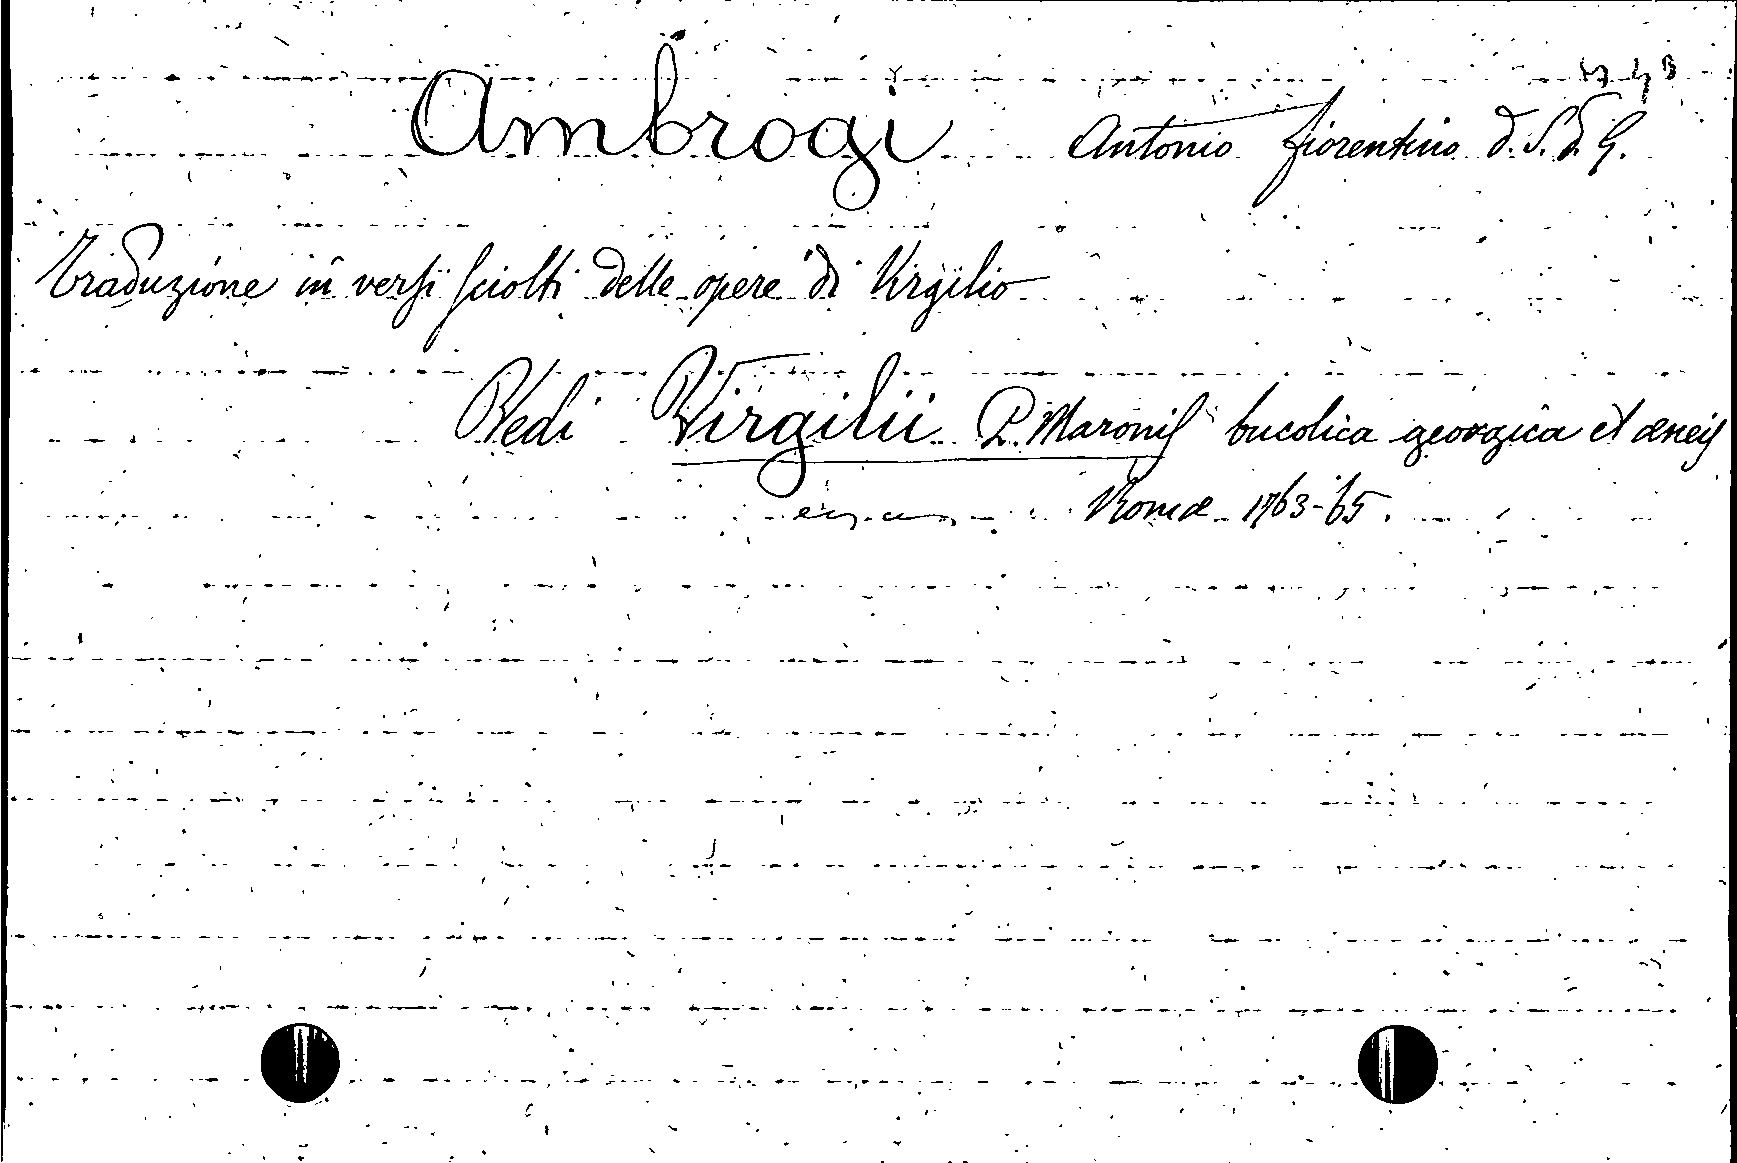 Ambrogi Antonio fiorentino d. S. d. G.
Traduzione in versi sciolti delle opere di Virgilio
Vedi Virgilii P. Maronis bucolica georgica et æneis
Romæ 1763-65.